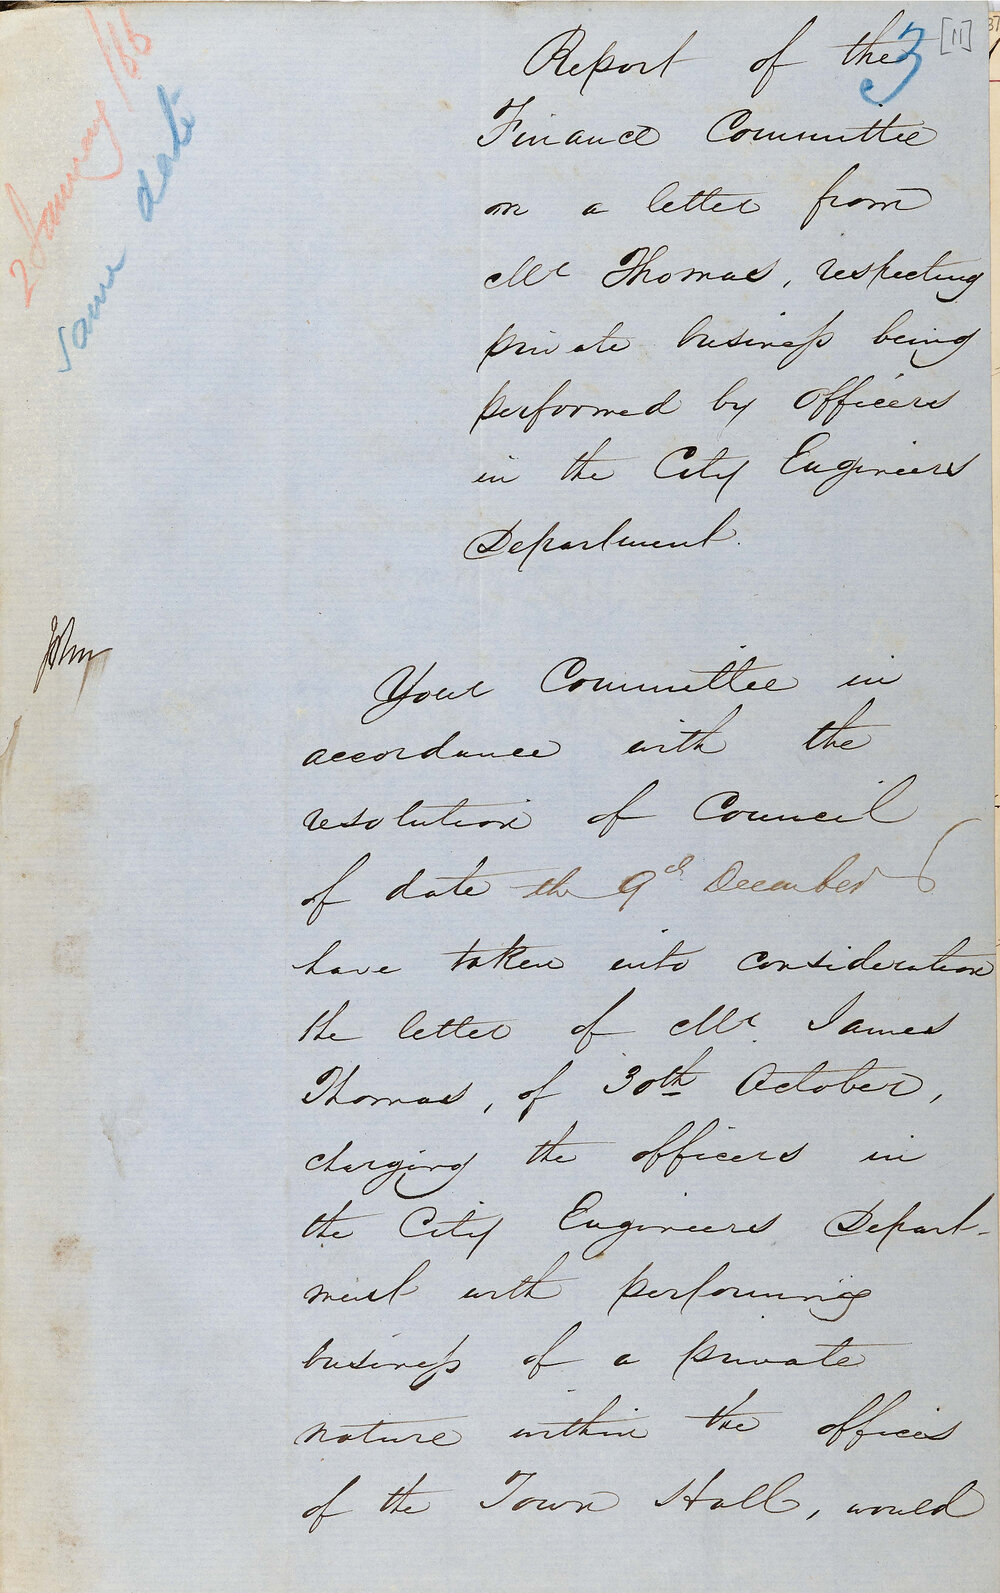 [11]
3
20 January/65
same date
Report of the
Finance Committee
on a letter from
Mr Thomas, respecting
private business being
performed by Officers
in the City Engineers
Department.
John
Your Committee in
accordance with the
resolution of Council
of date the 9th December
have taken into consideration
the letter of Mr. James
Thomas, of 30th October,
charging the officers in
the City Engineers Depart-
ment with performing
business of a private
nature within the offices
of the Town Hall, would